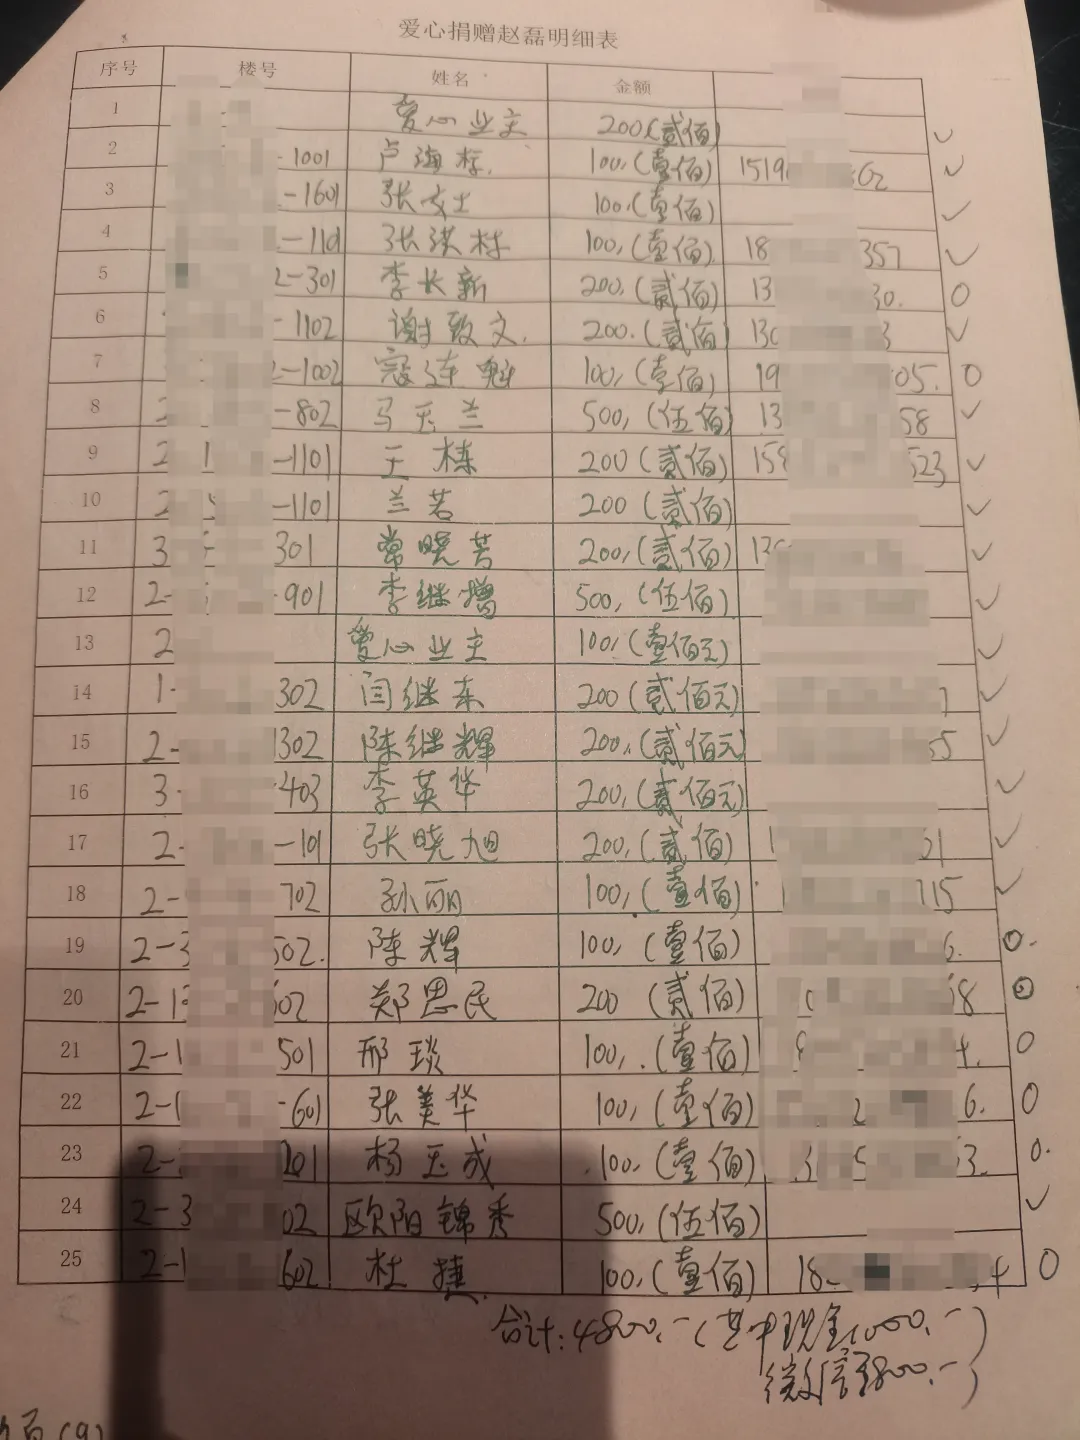 爱心捐赠赵磊明细表
序号 楼号 姓名 金额
1 爱心业主 200(贰佰)
2 -1001 卢海标. 100,(壹佰) 1519 02
3 -1601 张女士 100.(壹佰)
4 -1101 张洪栋 100,(壹佰) 18 357
5 2-301 李长新 200,(贰佰) 13 30.
6 -1102 谢致文. 200.(贰佰) 130 3
7 2-1002 寇连魁 100,(壹佰) 19 05.
8 2 -802 马玉兰 500,(伍佰) 13 58
9 2 1 -1101 王栋 200(贰佰) 159 523
10 2 -1101 兰若 200(贰佰)
11 3 301 常晓芳 200,(贰佰) 130
12 2- -901 李继增 500,(伍佰)
13 2 爱心业主 100,(壹佰元)
14 1- 302 闫继东 200(贰佰元)
15 2- 302 陈继辉 200,(贰佰元) 55
16 3- 403 李英华 200,(贰佰元)
17 2- -101 张晓旭 200,(贰佰) 1 21
18 2- 702 孙丽 100,(壹佰) 715
19 2-3 502. 陈辉 100,(壹佰) 6.
20 2-1 602 郑思民 200(贰佰) 58
21 2-1 501 邢琰 100,.(壹佰) 4.
22 2-1 -601 张美华 100,(壹佰) 2 6.
23 2- 201 杨玉成 100.(壹佰) 3 5 53.
24 2-3 02 欧阳锦秀 500,(伍佰)
25 2-1 602 杜捷. 100,(壹佰) 18 4
合计:4800.-(其中现金1000.-
微信3800.-)
(9)